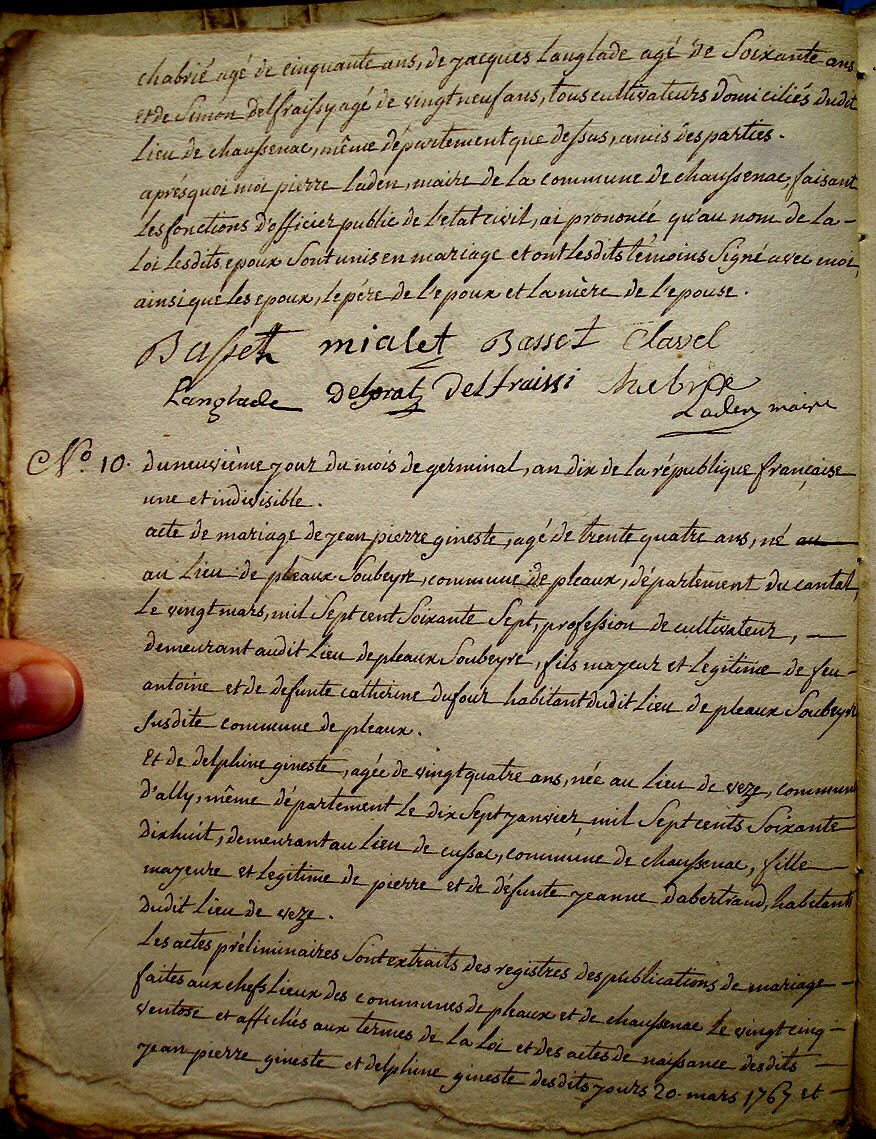 chabrié agé de cinquante ans, de jacques Langlade agé de Soixante ans
et de Simon Delfraissy agé de vingt neuf ans, tous cultivateurs domiciliés dudit
Lieu de chaussenac, même département que dessus, amis des parties.
après quoi moi pierre Laden, maire de La commune de chaussenac, faisant
Les fonctions d'officier public de L'etat civil, ai prononcé qu'au nom de La -
Loi Lesdits epoux Sont unis en mariage et ont Lesdits témoins Signé avec moi,
ainsi que Les epoux, Le père de L'epoux et La mère de L'epouse.
Basset mialet Basset Clavel
Langlade Delprat Delfraissi
Laden maire
No. 10. du neuvième jour du mois de germinal, an dix de La république française
une et indivisible.
acte de mariage de jean pierre gineste, agé de trente quatre ans, né au
au Lieu de pleaux Soubeyre, commune de pleaux, département du cantal,
Le vingt mars, mil Sept cent Soixante Sept, profession de cultivateur, -
demeurant audit Lieu de pleaux Soubeyre, fils majeur et Legitime de feu -
antoine et de defunte catherine dufour habitant dudit Lieu de pleaux Soubeyre
Susdite commune de pleaux.
Et de delphine gineste, agée de vingt quatre ans, née au Lieu de veze, commune
d'ally, même département Le dix Sept janvier, mil Sept cents Soixante
dix huit, demeurant au Lieu de cussac, commune de chaussenac, fille -
majeure et Legitime de pierre et de défunte jeanne dabertrand, habitants
dudit Lieu de veze.
Les actes préliminaires Sont extraits des registres des publications de mariage -
faites aux chefs Lieux des communes de pleaux et de chaussenac Le vingt cinq -
ventose et affichés aux termes de La Loi et des actes de naissance desdits -
jean pierre gineste et delphine gineste desdits jours 20. mars 1767 et -